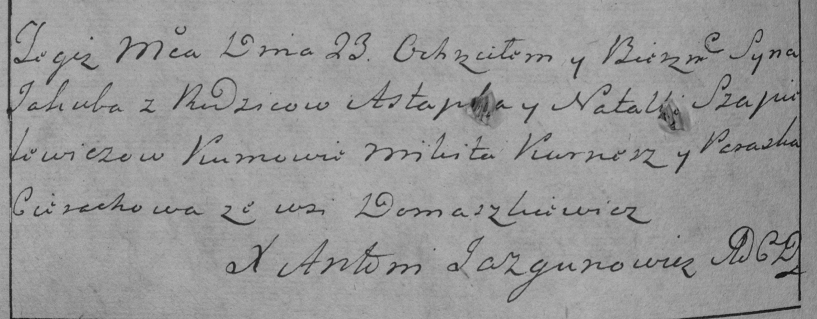 Tegiż Mča Dnia 23. Ochrzciłem y Bierzmᶜ Syna
Jakuba z Rodzicow Astapka y Natalki Szapie
lewiczow Kumowie Mikita Kurnesz y Paraska
Cierachowa ze wsi Domaszkiewicz
X Antoni Jazgunowicz